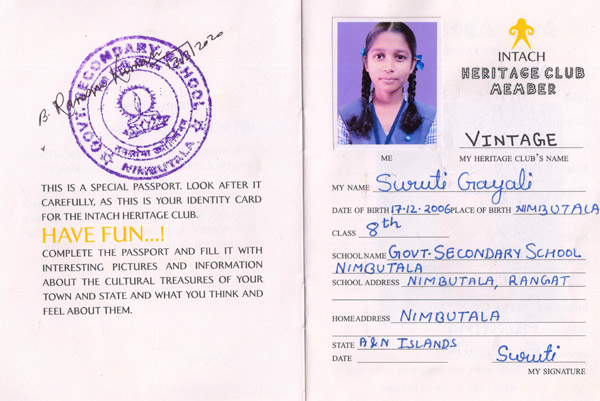 GOVT. SECONDARY SCHOOL
NIMBUTALA
तमसो मा ज्योतिर्गमय
THIS IS A SPECIAL PASSPORT. LOOK AFTER IT
CAREFULLY, AS THIS IS YOUR IDENTITY CARD
FOR THE INTACH HERITAGE CLUB.
HAVE FUN...!
COMPLETE THE PASSPORT AND FILL IT WITH
INTERESTING PICTURES AND INFORMATION
ABOUT THE CULTURAL TREASURES OF YOUR
TOWN AND STATE AND WHAT YOU THINK AND
FEEL ABOUT THEM.
INTACH
HERITAGE CLUB
MEMBER
VINTAGE
ME
MY HERITAGE CLUB'S NAME
MY NAME Swruti Gayali
DATE OF BIRTH 17-12-2006 PLACE OF BIRTH NIMBUTALA
CLASS 8th
SCHOOL NAME GOVT. SECONDARY SCHOOL
NIMBUTALA
SCHOOL ADDRESS NIMBUTALA, RANGAT
HOME ADDRESS NIMBUTALA
STATE A&N ISLANDS
DATE Swruti
MY SIGNATURE